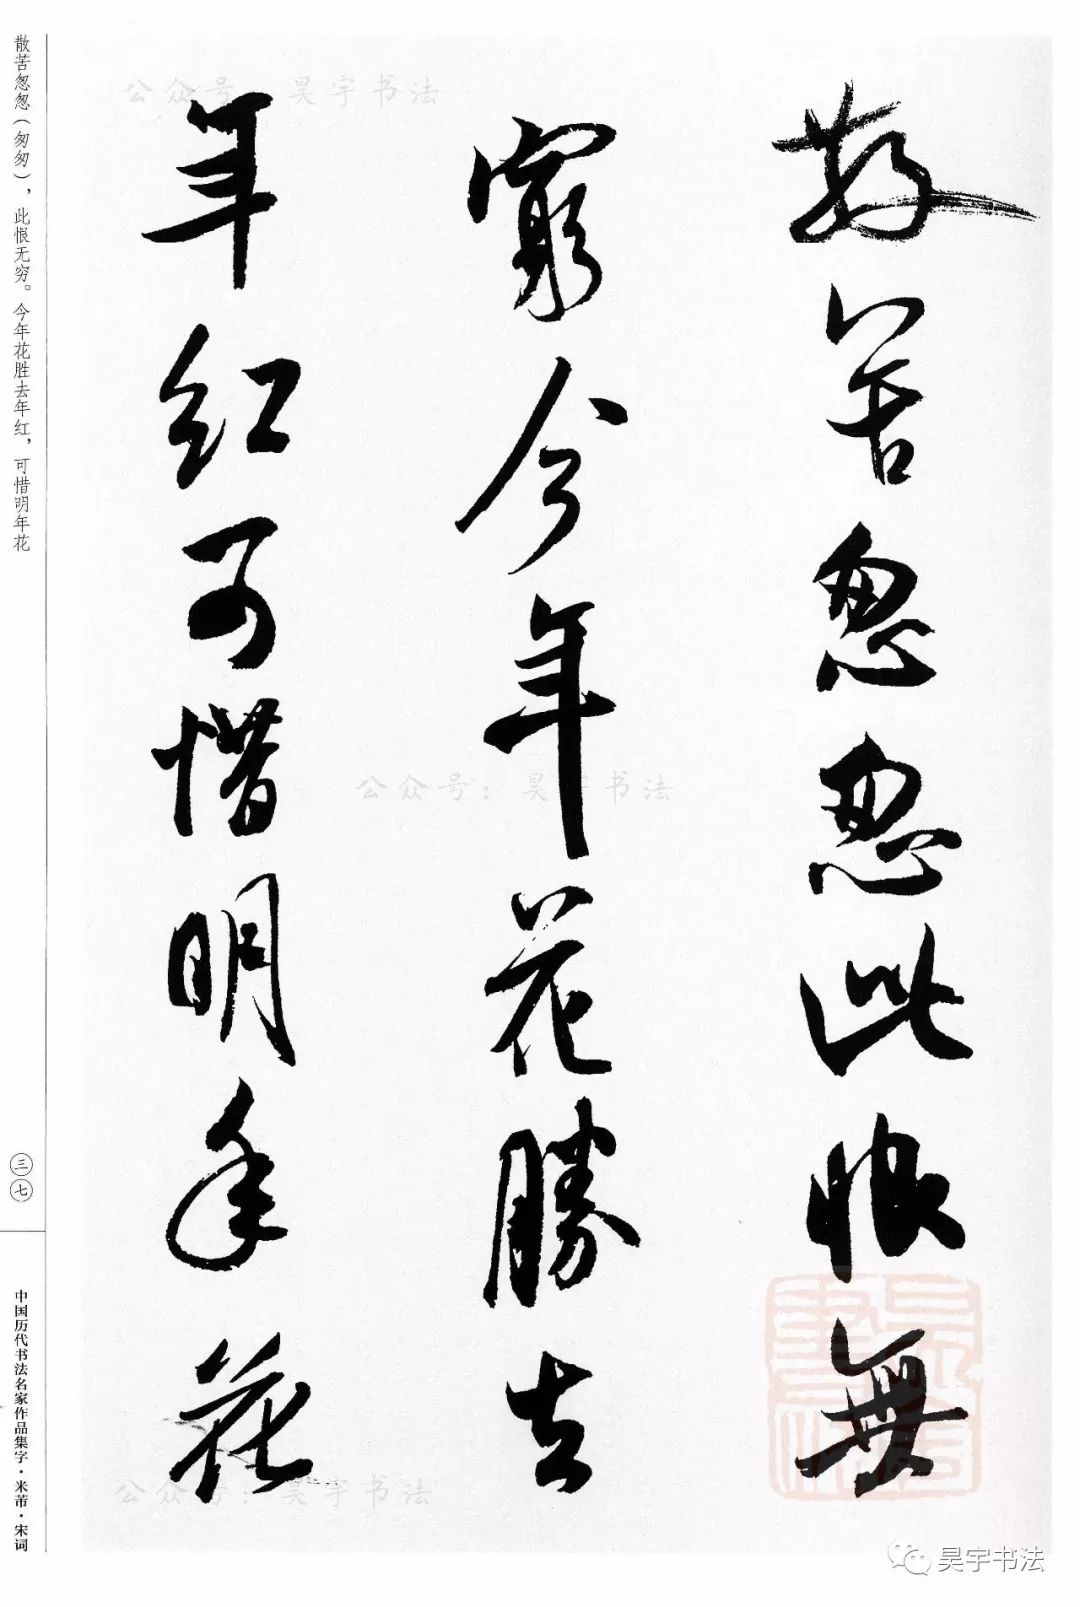 散苦怱怱此恨無
窮今年花勝去
年红可惜明年花
散苦怱怱（匆匆），此恨无穷。今年花胜去年红，可惜明年花
三七
中国历代书法名家作品集字·米芾·宋词
公众号：昊宇书法
公众号：昊宇书法
公众号：昊宇书法
昊宇书法